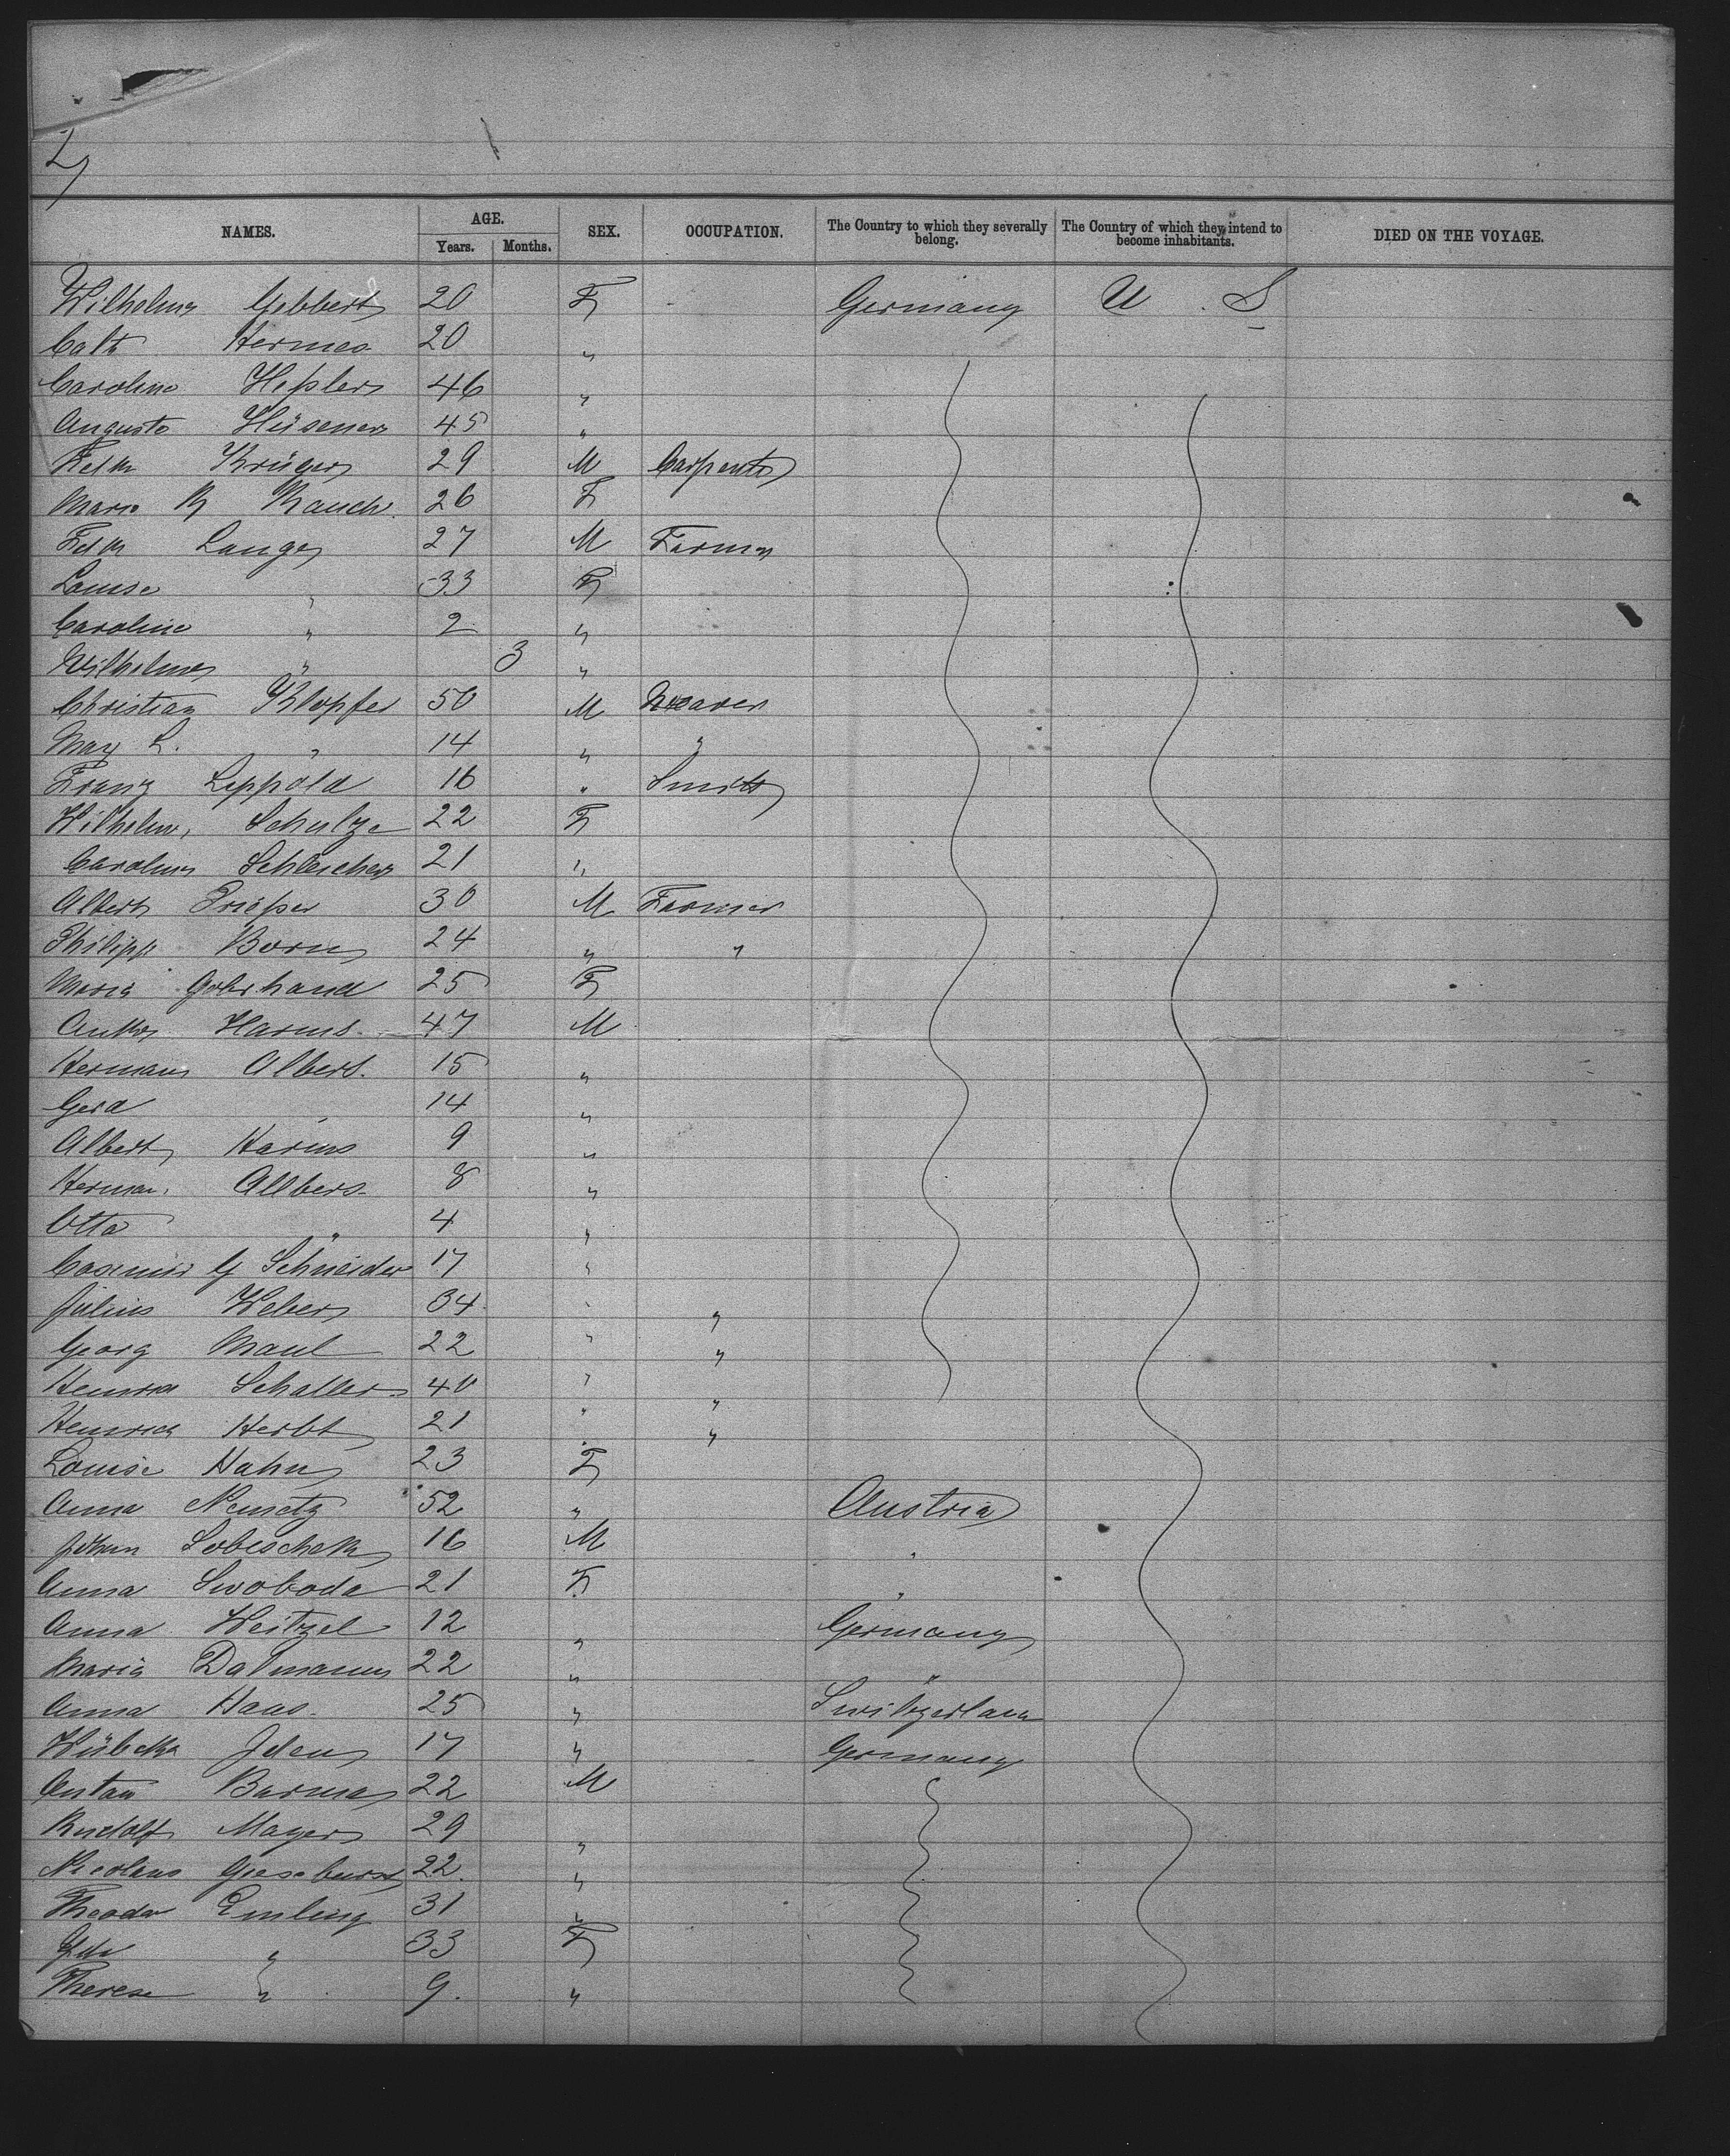 2,
NAMES. AGE. Years. Months. SEX. OCCUPATION. The Country to which they severally belong. The Country of which they intend to become inhabitants. DIED ON THE VOYAGE.
Wilhelmy Gebbert 20 F Germany U. S
Cath Hermes 20 "
Caroline Heßler 46 "
Auguste Hüsener 45 "
Fedk Krüger 29 M Carpenter
Marie K Rauch 26 F
Fedk Lange 27 M Farmer
Louise " 33 F
Caroline " 2 "
Wilhelmy " 3 "
Christian Klopfer 50 M Weaver
May L. " 14 " "
Franz Leppold 16 " Smith
Wilhelm. Schulze 22 F
Caroline Schleicher 21 "
Albert Prießer 30 M Farmer
Philipp Born 24 " "
Maria 25 F
Harms 47 M
Hermann Albers. 15 "
Gerd 14 "
Albert Harms 9 "
Herman. Allbers 8 "
Otto " 4 "
Casimir G Schneider 17 "
Julius Weber 34 " "
Georg Maul 22 " "
Heinrich Schaller 40 " "
Heinrich Herbt 21 " "
Louise Hahn 23 F
Anna Nemetz 52 " Austria
Johan Sobischek 16 M "
Anna Swoboda 21 F "
Anna Weitzel 12 " Germany
Maria Dalmann 22 " "
Anna Haas 25 " Switzerland
Wübcke Iden 17 " Germany
Gustav 22 M
Rudolf Mayer 29 "
Nicolaus 22. "
Theodor Emling 31 "
Ida " 33 F
Therese " 9. "